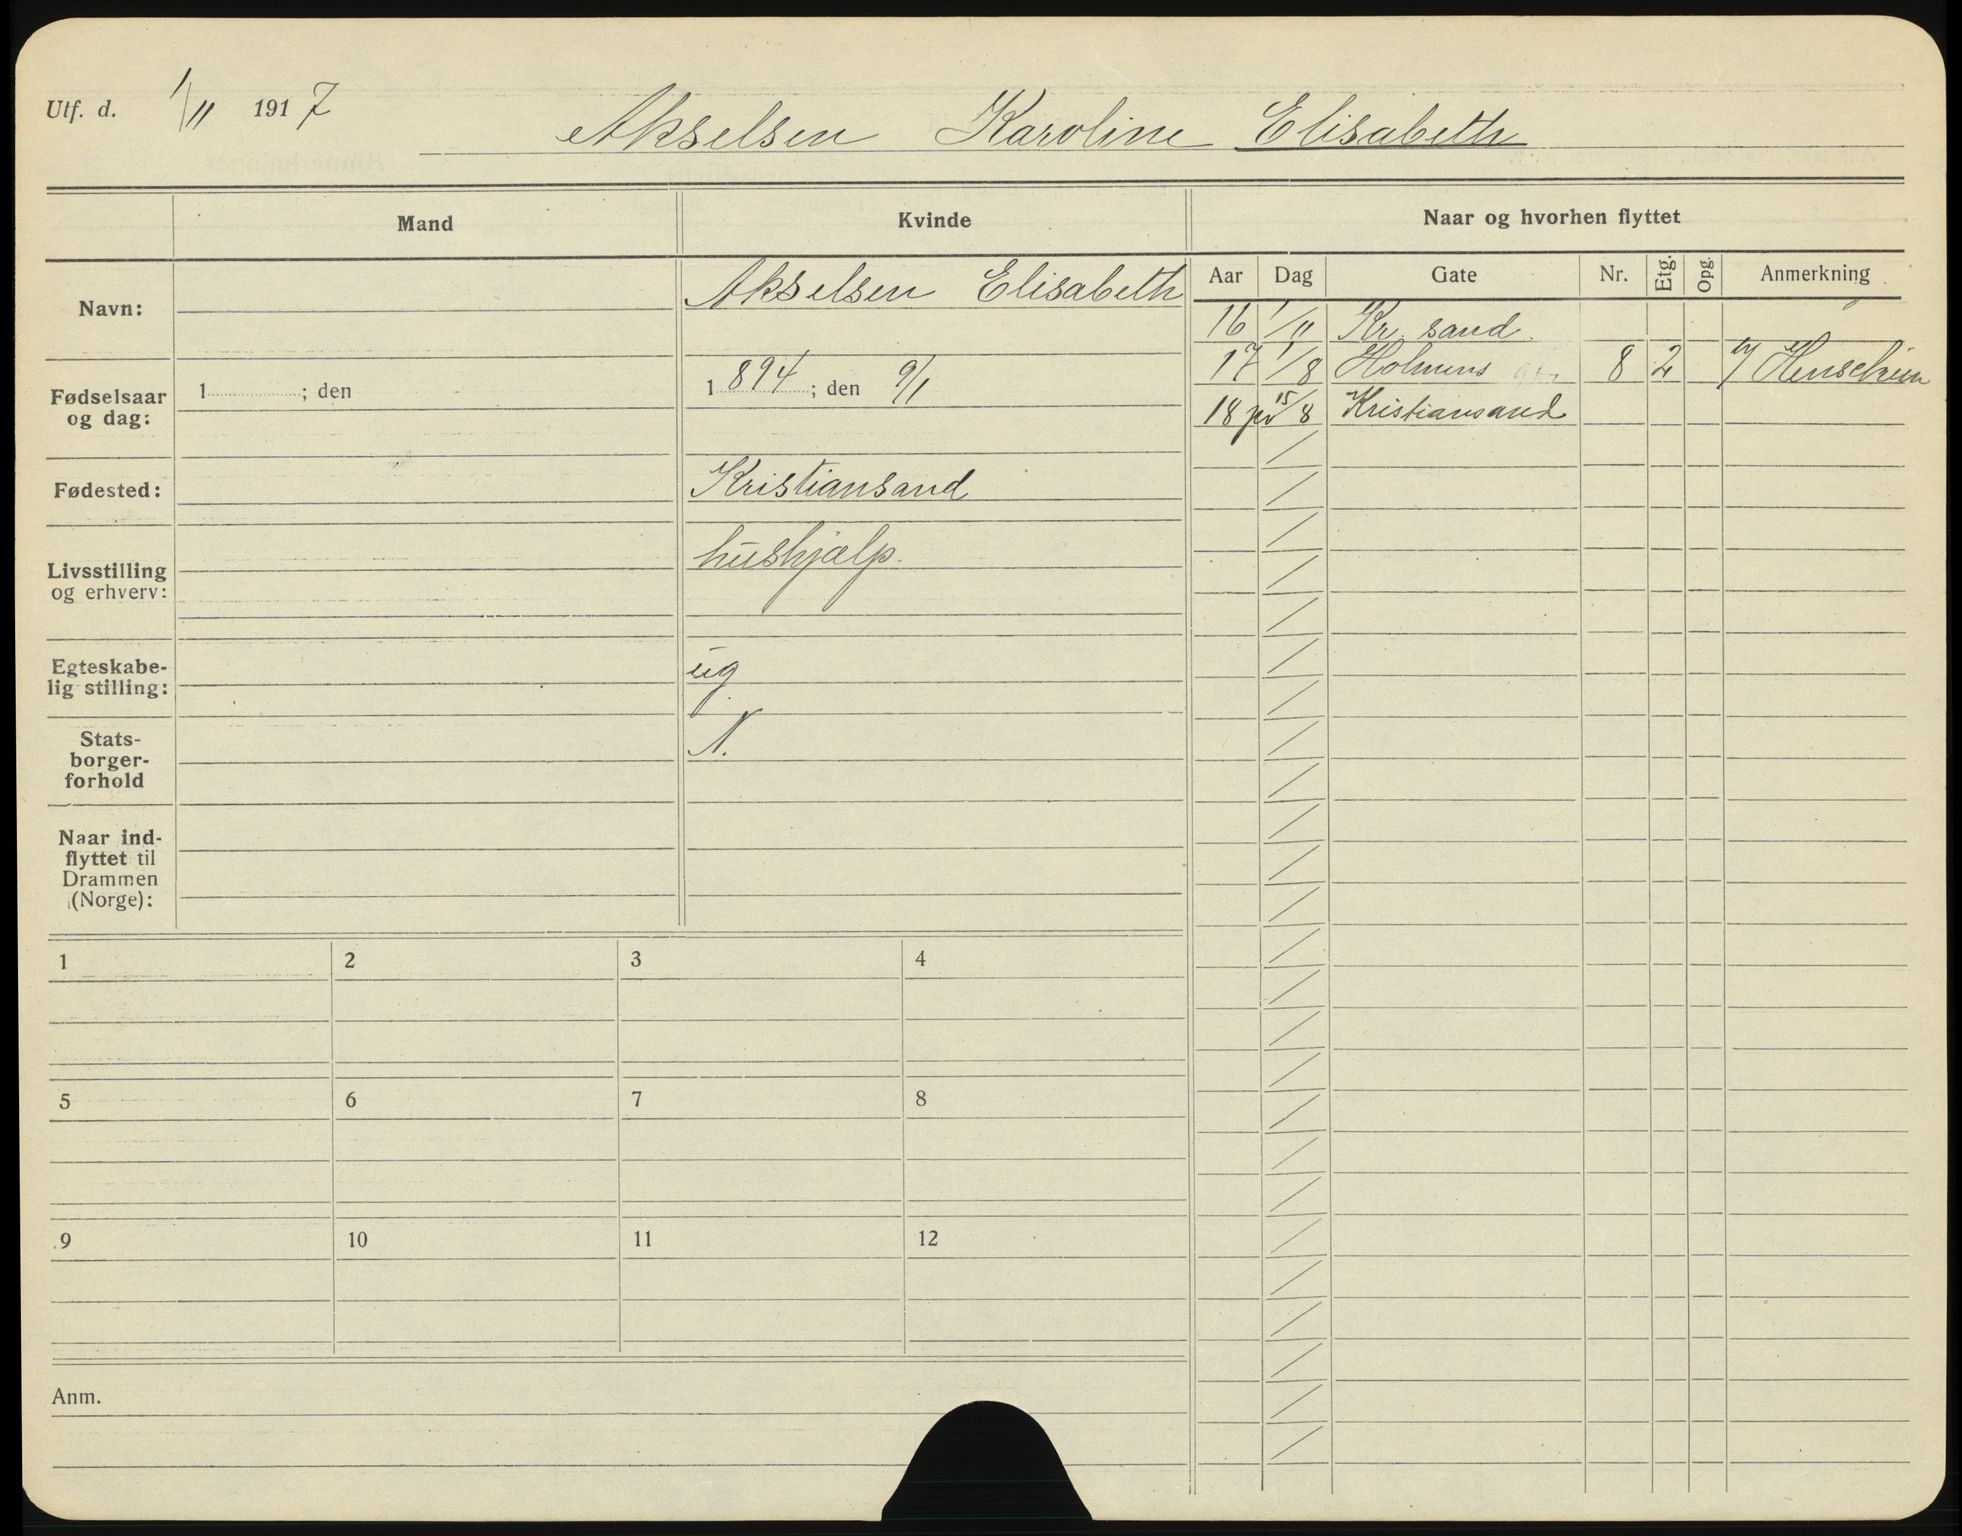 Utf. d. 1/11 1917
Akselsen Karoline Elisabeth
Mand Kvinde Naar og hvorhen flyttet
Aar Dag Gate Nr. Etg. Opg. Anmerkning
Navn: Akselsen Elisabeth
16 1/11 Kr. sand.
17 1/8 Holmens 8 2
18 15/8 Kristiansand
Fødselsaar og dag: 1 ; den 1894 ; den 9/1
Fødested: Kristiansand
Livsstilling og erhverv: hushjælp.
Egteskabe-
lig stilling: ug
Stats-
borger-
forhold N.
Naar ind-
flyttet til
Drammen
(Norge):
1 2 3 4
5 6 7 8
9 10 11 12
Anm.